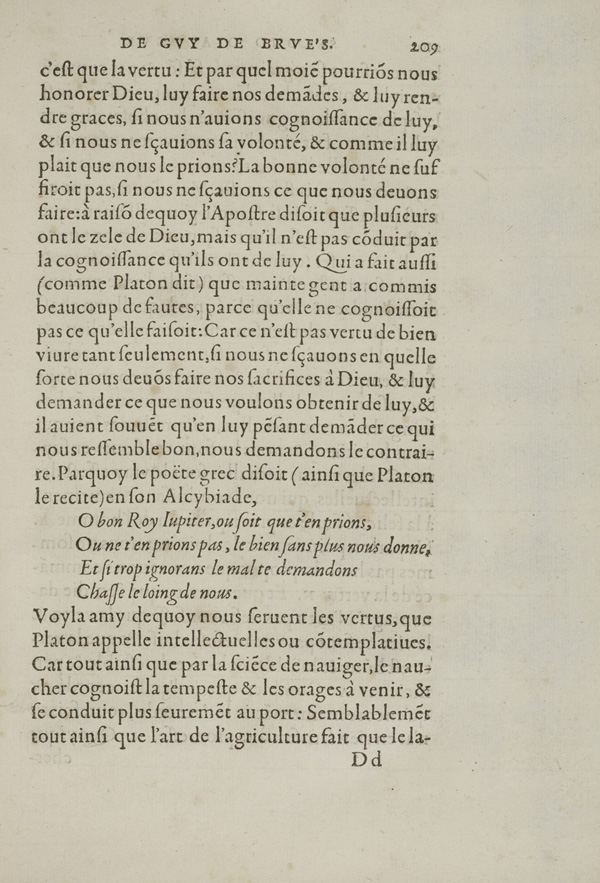 DE GVY DE BRVE'S. 209
c'eſt que la vertu : Et par quel moiẽ pourriõs nous
honorer Dieu, luy faire nos demãdes, & luy ren-
dre graces, ſi nous n'auions cognoiſſance de luy,
& ſi nous ne ſçauions ſa volonté, & comme il luy
plait que nous le prions? La bonne volonté ne ſuf
firoit pas, ſi nous ne ſçauions ce que nous deuons
faire: à raiſõ dequoy l'Apoſtre diſoit que pluſieurs
ont le zele de Dieu, mais qu'il n'eſt pas cõduit par
la cognoiſſance qu'ils ont de luy. Qui a fait auſſi
(comme Platon dit) que mainte gent a commis
beaucoup de fautes, parce qu'elle ne cognoiſſoit
pas ce qu'elle faiſoit: Car ce n'eſt pas vertu de bien
viure tant ſeulement, ſi nous ne ſçauons en quelle
ſorte nous deuõs faire nos ſacrifices à Dieu, & luy
demander ce que nous voulons obtenir de luy, &
il auient ſouuẽt qu'en luy pẽſant demãder ce qui
nous reſſemble bon, nous demandons le contrai-
re. Parquoy le poëte grec diſoit (ainſi que Platon
le recite) en ſon Alcybiade,
O bon Roy Iupiter, ou ſoit que t'en prions,
Ou ne t'en prions pas, le bien ſans plus nous donne,
Et ſi trop ignorans le mal te demandons
Chaſſe le loing de nous.
Voyla amy dequoy nous ſeruent les vertus, que
Platon appelle intellectuelles ou cõtemplatiues.
Car tout ainſi que par la ſciẽce de nauiger, le nau-
cher cognoiſt la tempeſte & les orages à venir, &
ſe conduit plus ſeuremẽt au port : Semblablemẽt
tout ainſi que l'art de l'agriculture fait que le la-
Dd